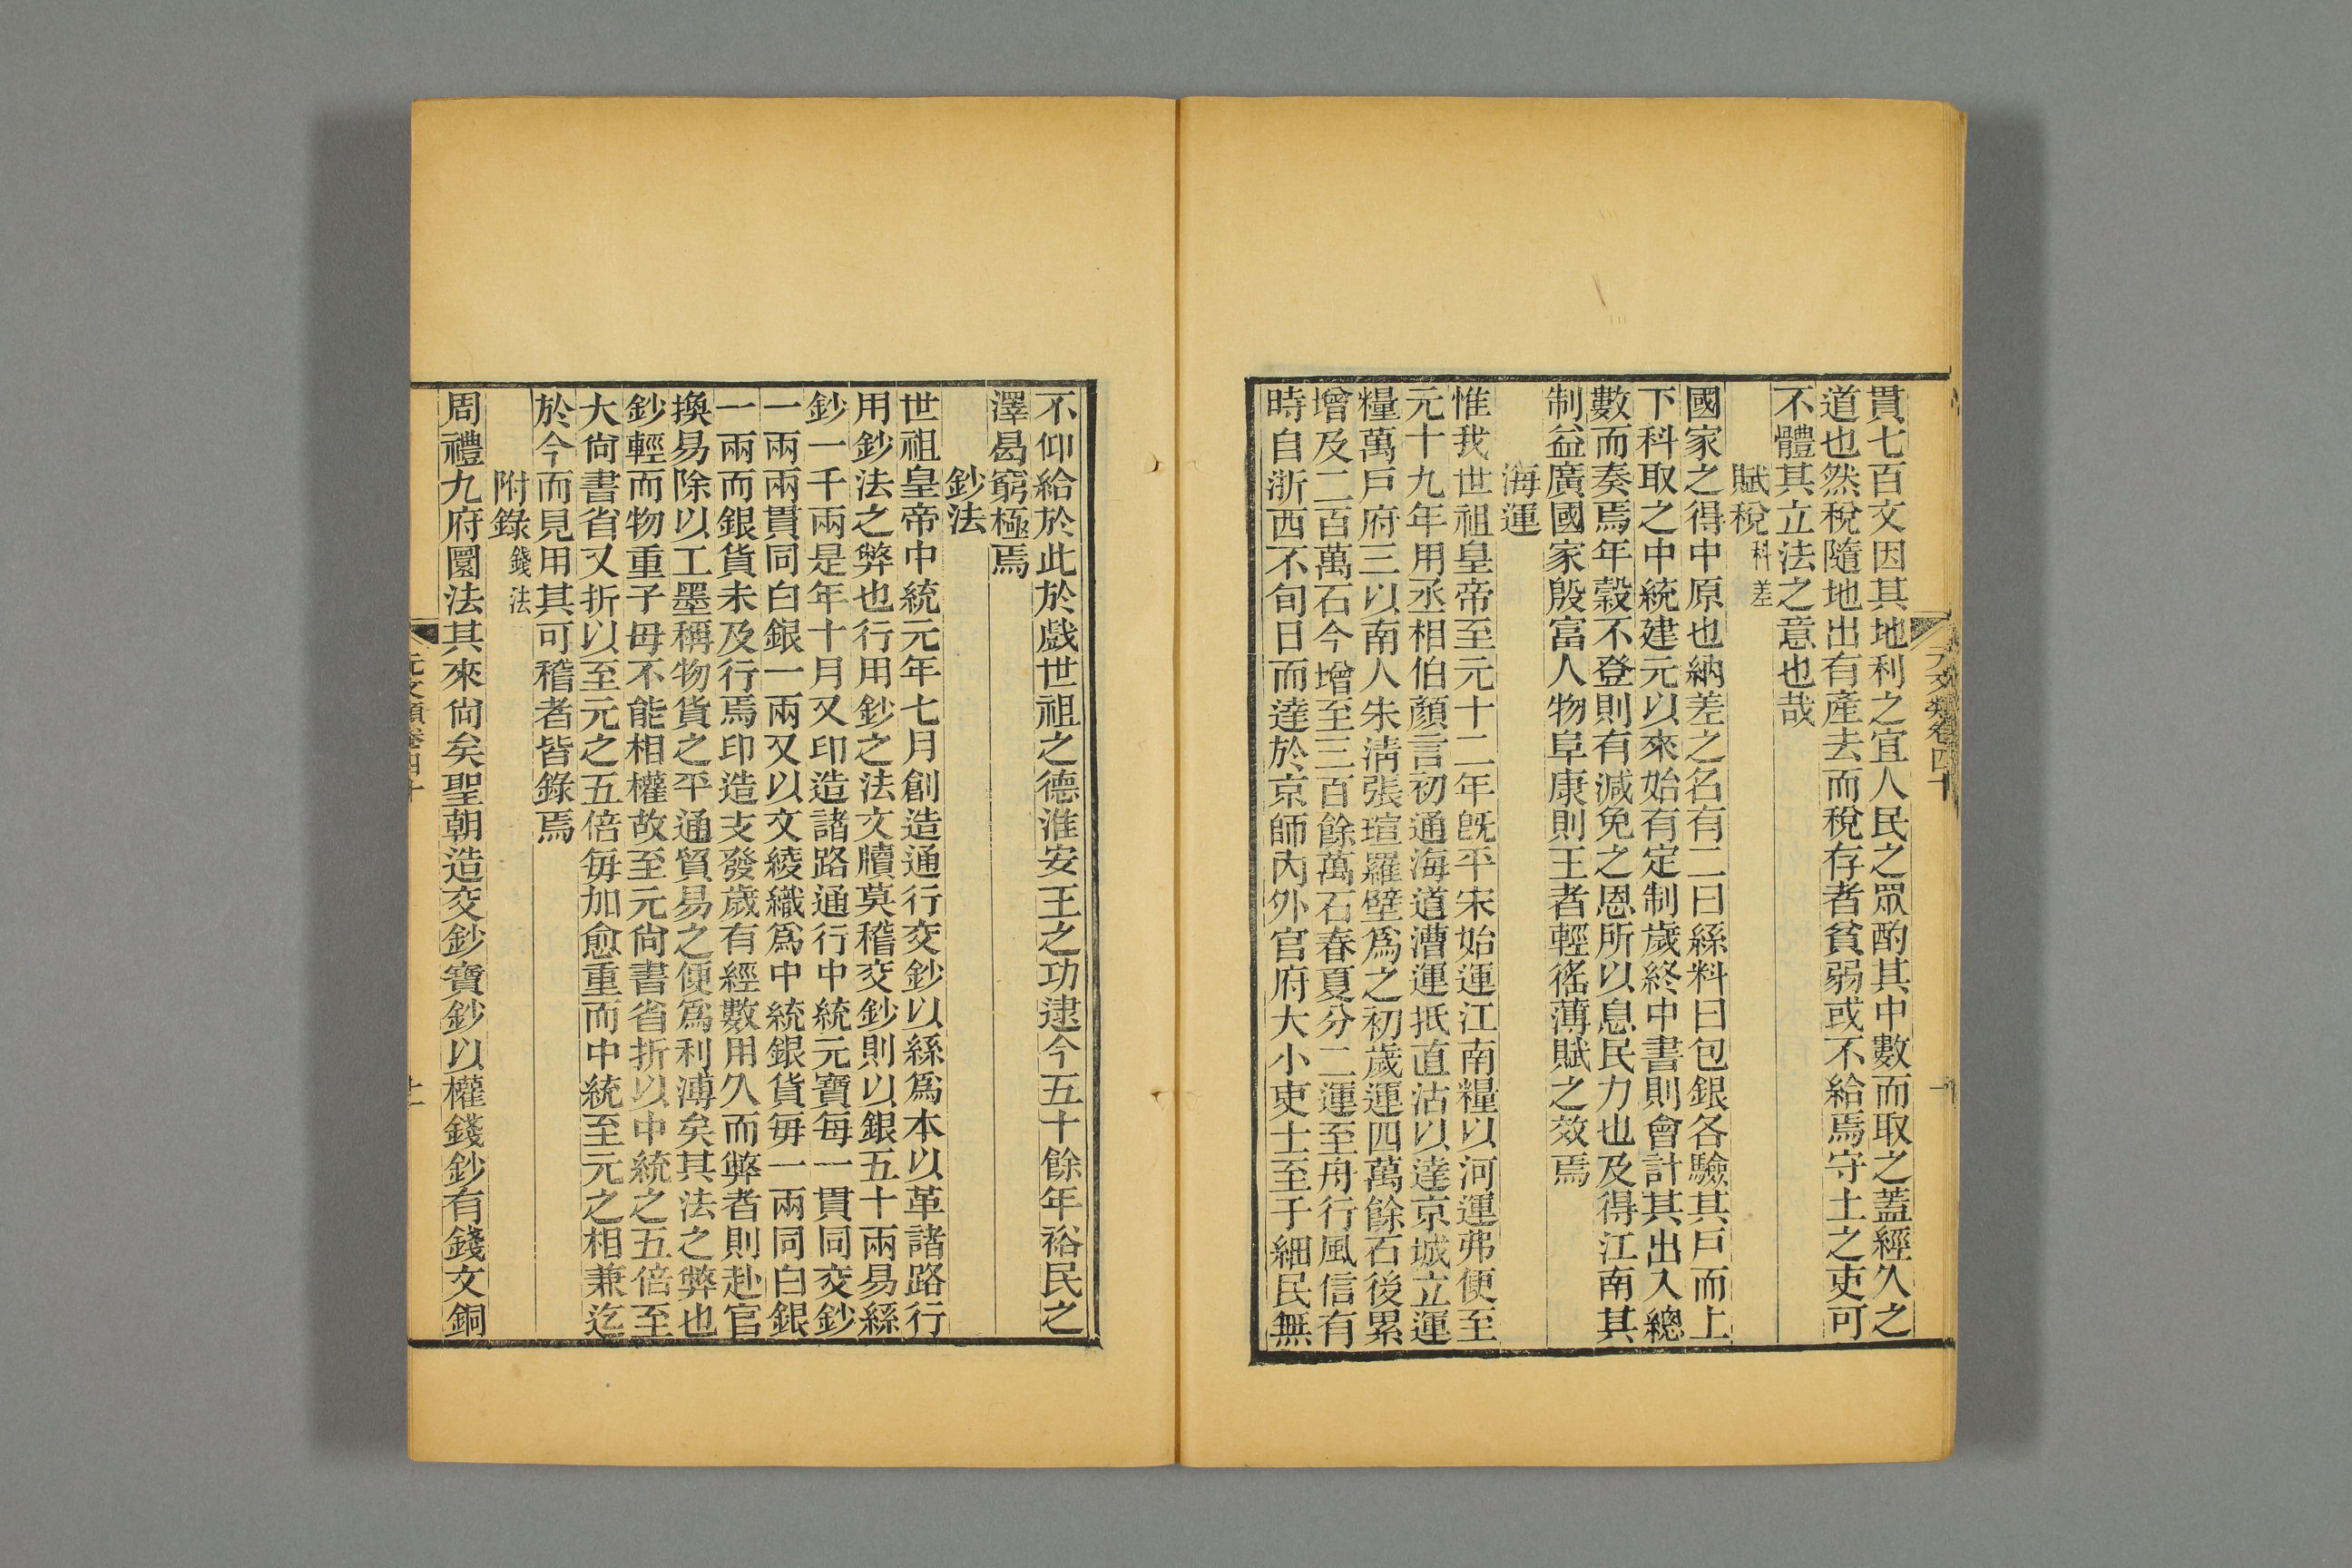 貫七百文因其地利之宜人民之眾酌其中數而取之蓋經久之
道也然稅隨地出有產去而稅存者貧弱或不給焉守土之吏可
不體其立法之意也哉
賦稅科差
國家之得中原也納差之名有二曰絲料曰包銀各驗其戶而上
下科取之中統建元以來始有定制歲終中書則會計其出入總
數而奏焉年穀不登則有減免之恩所以息民力也及得江南其
制益廣國家殷富人物阜康則王者輕徭薄賦之效焉
海運
惟我世祖皇帝至元十二年旣平宋始運江南糧以河運弗便至
元十九年用丞相伯顏言初通海道漕運抵直沽以達京城立運
糧萬戶府三以南人朱淸張瑄羅璧爲之初歲運四萬餘石後累
增及二百萬石今增至三百餘萬石春夏分二運至舟行風信有
時自浙西不旬日而達於京師內外官府大小吏士至于細民無
元文類卷四十
不仰給於此於戲世祖之德淮安王之功逮今五十餘年裕民之
澤曷窮極焉
鈔法
世祖皇帝中統元年七月創造通行交鈔以絲爲本以革諸路行
用鈔法之弊也行用鈔之法文牘莫稽交鈔則以銀五十兩易絲
鈔一千兩是年十月又印造諸路通行中統元寶每一貫同交鈔
一兩兩貫同白銀一兩又以文綾織爲中統銀貨毎一兩同白銀
一兩而銀貨未及行焉印造支發歲有經數用久而弊者則赴官
換易除以工墨稱物貨之平通貿易之便爲利溥矣其法之弊也
鈔輕而物重子毋不能相權故至元尙書省折以中統之五倍至
大尙書省又折以至元之五倍毎加愈重而中統至元之相兼迄
於今而見用其可稽者皆錄焉
附錄錢法
周禮九府圜法其來尙矣聖朝造交鈔寶鈔以權錢鈔有錢文銅
元文類卷四十